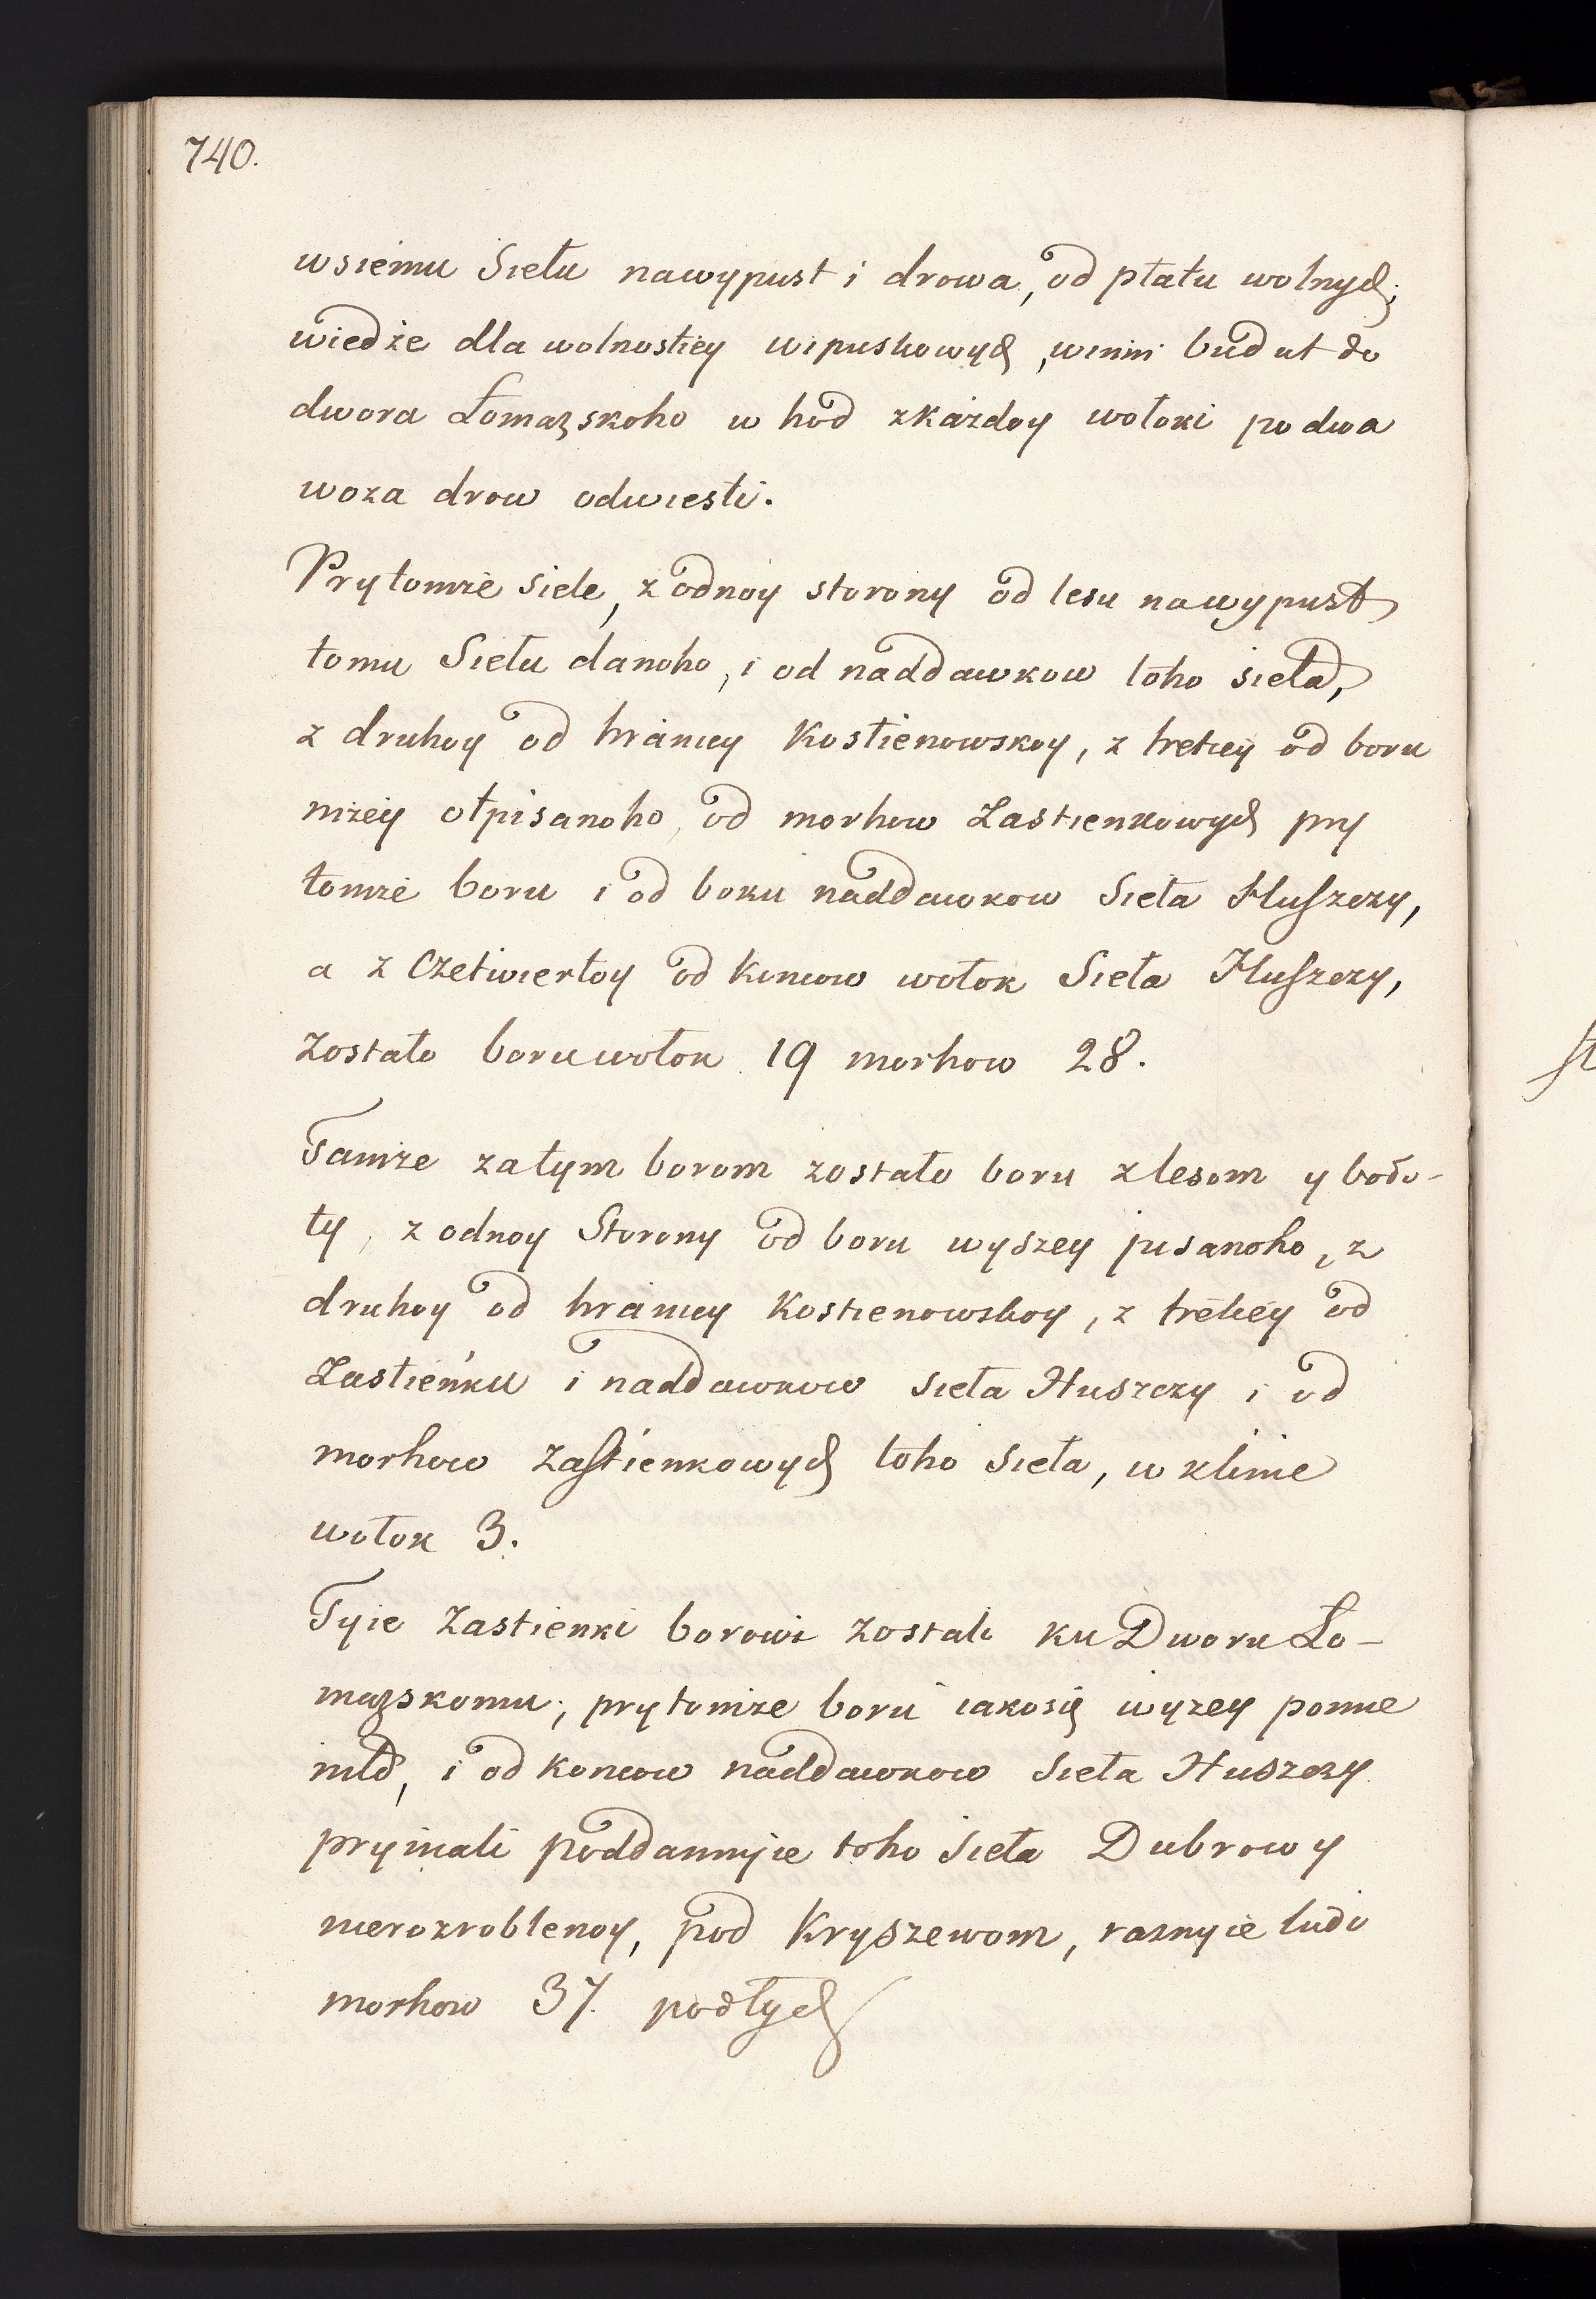 740.
wsiemu Siełu nawypust i drowa, od płatu wolnych;
wiedże dla wolnostiey wipuskowych, winni budut do
dwora Łomazskoho w hod zkażdoy wołoki po dwa
woza drow odwiesti.
Prytomże siele, z odnoy storony od lesu nawypust
tomu Siełu danoho, i od naddawkow toho sieła,
z druhoy od hranicy Kostienowskoy, z tretiey od boru
niżey otpisanoho, od morhow Zastienkowych pry
tomże boru i od boku naddawkow Sieła Hluszczy,
a z Czetwiertoy od Koncow wołok Sieła Hluszczy,
Zostało boru wołok 19 morhow 28.
Tamże zatym borom zostało boru z lesom y boło-
ty, z odnoy Storony od boru wyszey pisanoho, z
druhoy od hranicy Kostienowskoy, z tretiey od
Zastieńku i naddawkow sieła Huszczy i od
morhow Zastienkowych toho Sieła, w klinie
wołok 3.
Tyie Zastienki borowi Zostali ku Dworu Ło-
mazskomu; prytomże boru iakosię wyżey pomie
niło, i od koncow naddawkow Sieła Huszczy
pryimali poddannyie toho Sieła Dubrowy
nierozroblenoy, pod Kryszewom, raznyie ludi
morhow 37. podłych